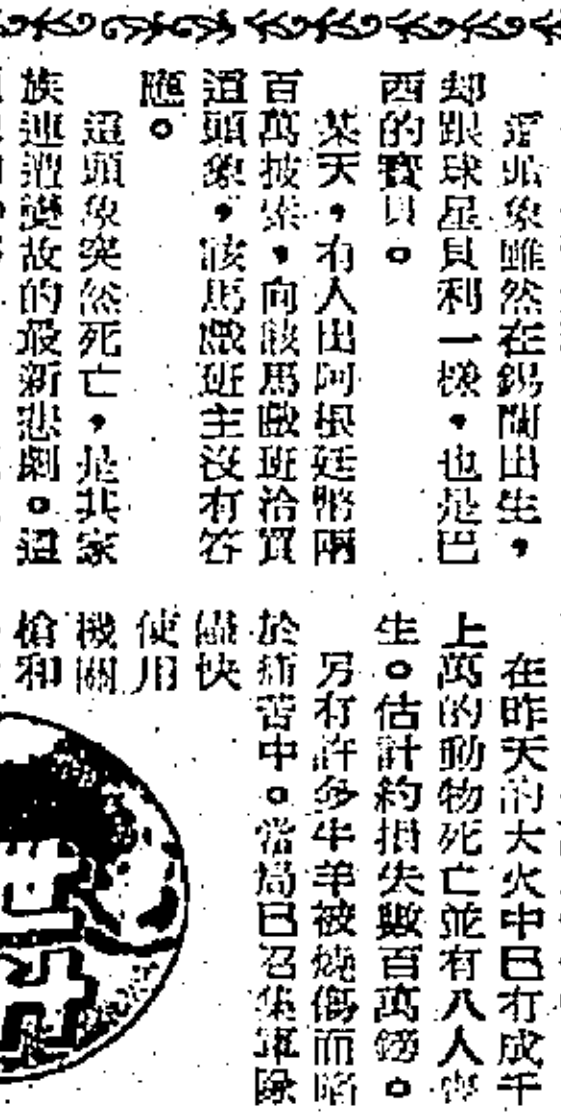 這頭象雖然在錫蘭出生，
却跟球星貝利一樣，也是巴
西的寶貝。
某天，有人出阿根廷幣兩
百萬披索，向該馬戲班洽買
這頭象，該馬戲班主沒有答
應。
這頭象突然死亡，是其家
族連遭變故的最新悲劇。這
在昨天的大火中已有成千
上萬的動物死亡並有八人喪
生。估計約損失數百萬鎊。
另有許多牛羊被燒傷而陷
於痛苦中。當局已召集軍隊
儘快
使用
機關
槍和